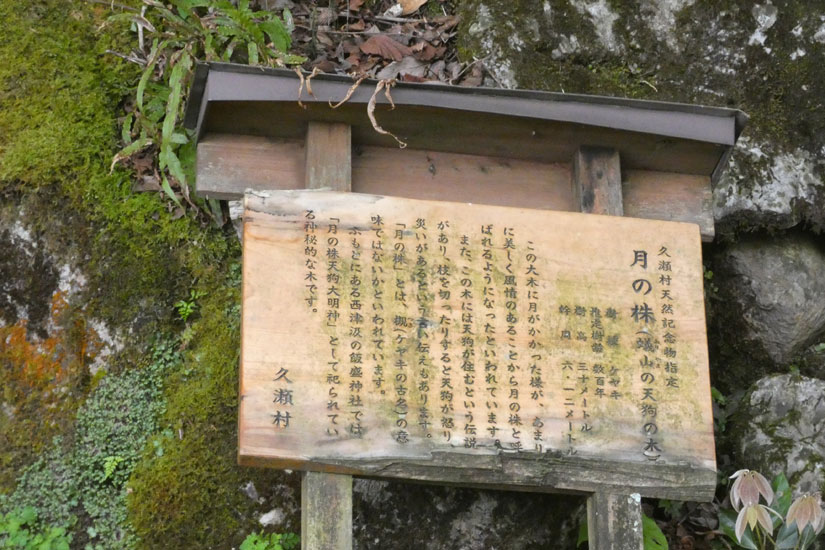 久瀬村天然記念物指定
月の株(蟻山の天狗の木)
樹種 ケヤキ
推定樹齢 数百年
樹高 三十メートル
幹周 六.一二メートル
この大木に月がかかった様が、あまり
に美しく風情のあることから月の株と呼
ばれるようになったといわれています。
また、この木には天狗が住むという伝説
があり、枝を切ったりすると天狗が怒り、
災いがあるという言い伝えもあります。
「月の株」とは、槻(ケヤキの古名)の意
味ではないかといわれています。
ふもとにある西津汲の飯盛神社では
「月の株天狗大明神」として祀られてい
る神秘的な木です。
久瀬村